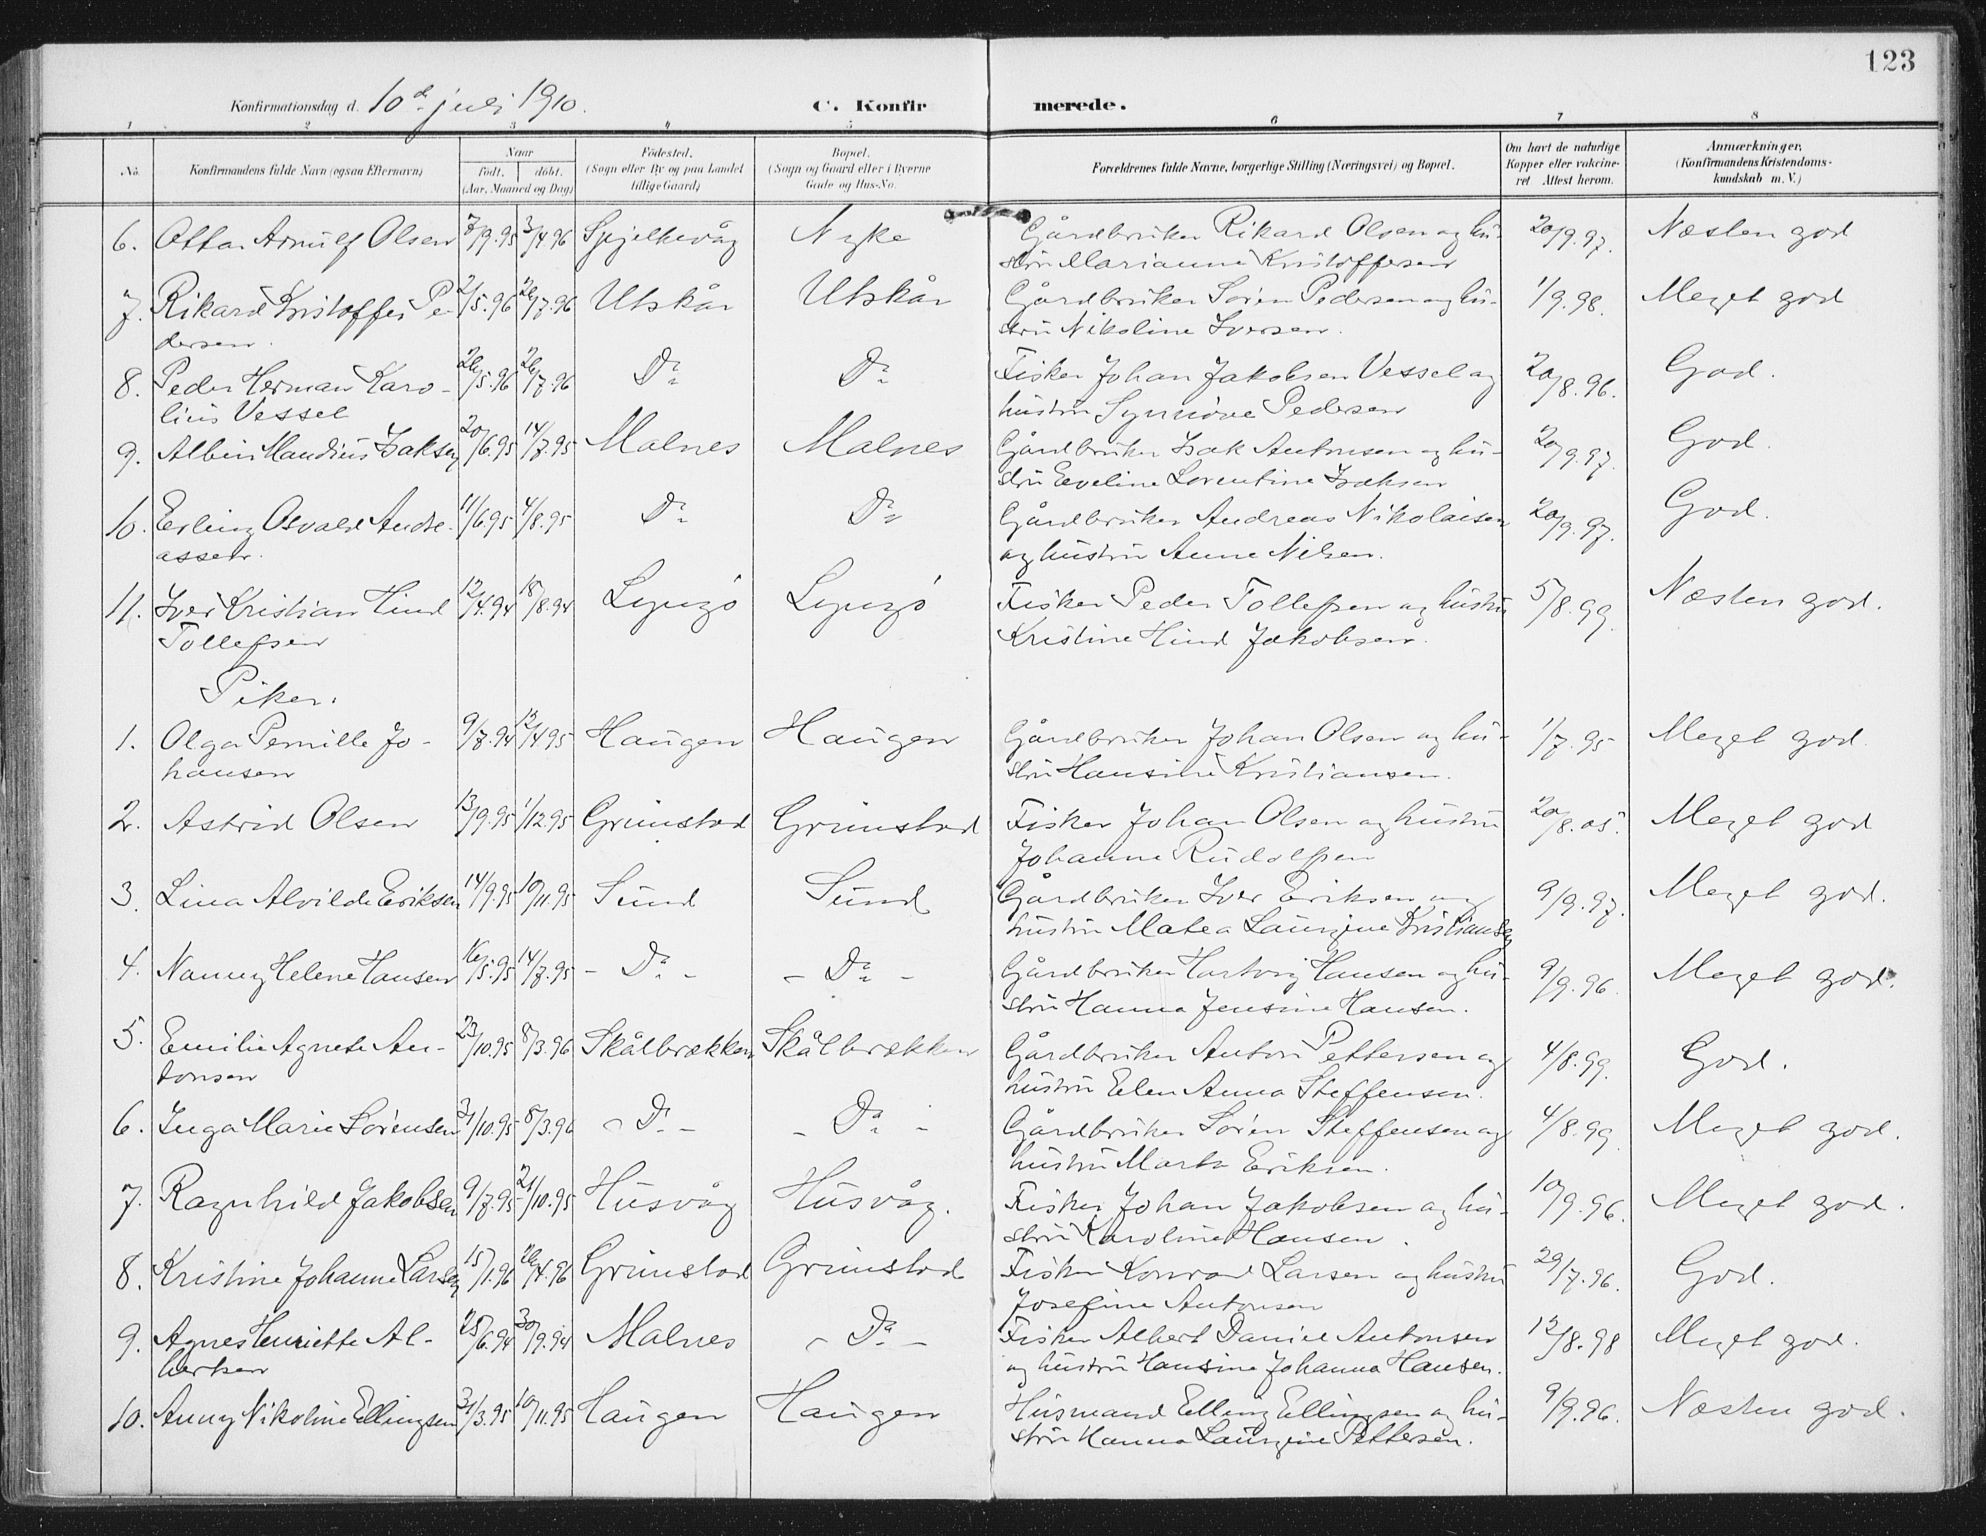 123
Konfirmationsdag d. 10de juli 1910. C. Konfirmerede.
1 2 3 4 5 6 7 8
No. Konfirmandens fulde Navn (ogsaa Efternavn) Naar født. døbt. (Aar, Maaned og Dag) Fødested. (Sogn eller By og paa Landet tillige Gaard) Bopæl. (Sogn og Gaard eller i Byerne Gade og Hus-No. Forældrenes fulde Navne, borgerlige Stilling (Næringsvei) og Bopæl. Om havt de naturlige Kopper eller vaccineret Attest herom. Anmærkninger, (Konfirmandens Kristendomskundskab m. V.)
6. Ottar Arnulf Olsen 7/9.95 3/4.96 Spjelkevåg Nyke Gårdbruker Rikard Olsen og hu- 20/9.97. Næsten god
stru Marianne Kristoffersen
7. Rikard Kristoffer Pe- 2/5.96 26/7.96 Utskår Utskår Gårdbruker Søren Pedersen og hu- 1/9.98. Meget god
dersen. stru Nikoline Iversen.
8. Peder Herman Karo- 26/5.96 26/7.96 Do Do Fisker Johan Jakobsen Vessel og 20/8.96. God.
lius Vessel hustru Synnøve Pedersen
9. Albin Maudius Isaksen 20/6.95 14/7.95 Malnes Malnes Gårdbruker Isak Antonsen og hu- 20/9.97. God.
stru Eveline Lorentine Isaksen
10. Erling Osvald Andre- 11/6.95 4/8.95 Do Do Gårdbruker Andreas Nikolaisen 20/9.97. God.
assen. og hustru Anne Nilsen.
11. Iver Kristian Hind 12/4.94 18/8.94 Lyngø Lyngø Fisker Peder Tollefsen og hustru 5/8.99. Næsten god.
Tollefsen Kristine Hind Jakobsen.
Piker.
1. Olga Pernille Jo- 9/7.94 12/4 95 Haugen Haugen Gårdbruker Johan Olsen og hu- 1/7.95 Meget god.
hansen stru Hansine Kristiansen.
2. Astrid Olsen 13/9.95 1/12.95 Grimstad Grimstad Fisker Johan Olsen og hustru 20/8.05. Meget god
Johanne Rudolfsen
3. Lina Alvilde Eriksen 14/9.95 10/11.95 Sund Sund Gårdbruker Iver Eriksen og 9/9.97. Meget god.
hustru Matea Laurine Kristiansen
4. Nanny Helene Hansen 16/5.95 14/7.95 - Do - - Do - Gårdbruker Hartvig Hansen og hu- 9/9.96. Meget god.
stru Hanna Jensine Hansen.
5. Emilie Agnete An- 23/10.95 8/3.96 Skålbrækken Skålbrækken Gårdbruker Anton Pettersen og 4/8.99. God.
tonsen hustru Elen Anna Steffensen.
6. Inga Marie Sørensen 31/10.95 8/3.96 - Do - - Do - Gårdbruker Søren Steffensen og 4/8.99. Meget god.
hustru Marta Eriksen.
7. Ragnhild Jakobsen 9/7.95 21/10.95 Husvåg Husvåg. Fisker Johan Jakobsen og hu- 10/9.96. Meget god.
stru Karoline Hansen.
8. Kristine Johanne Larsen 15/1.96 26/4.96 Grimstad Grimstad Fisker Konrad Larsen og hustru 29/7.96. God.
Josefine Antonsen
9. Agnes Henriette Al- 25/6.94 30/9.94 Malnes - Do - Fisker Albert Daniel Antonsen 12/8.98 Meget god.
bertsen og hustru Hansine Johanna Hansen.
10. Anny Nikoline Ellingsen 31/3.95 10/11.95 Haugen Haugen Husmand Elling Ellingsen og hu- 9/9.96. Næsten god.
stru Hanna Laurine Pettersen.